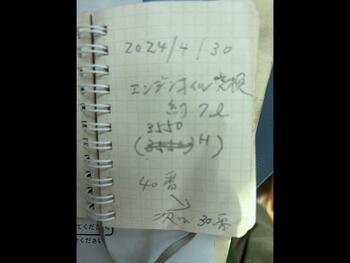 2024/4/30
エンジンオイル交換
約7ℓ
3550
(H)
40番
↘
次は30番
てくださ
ください